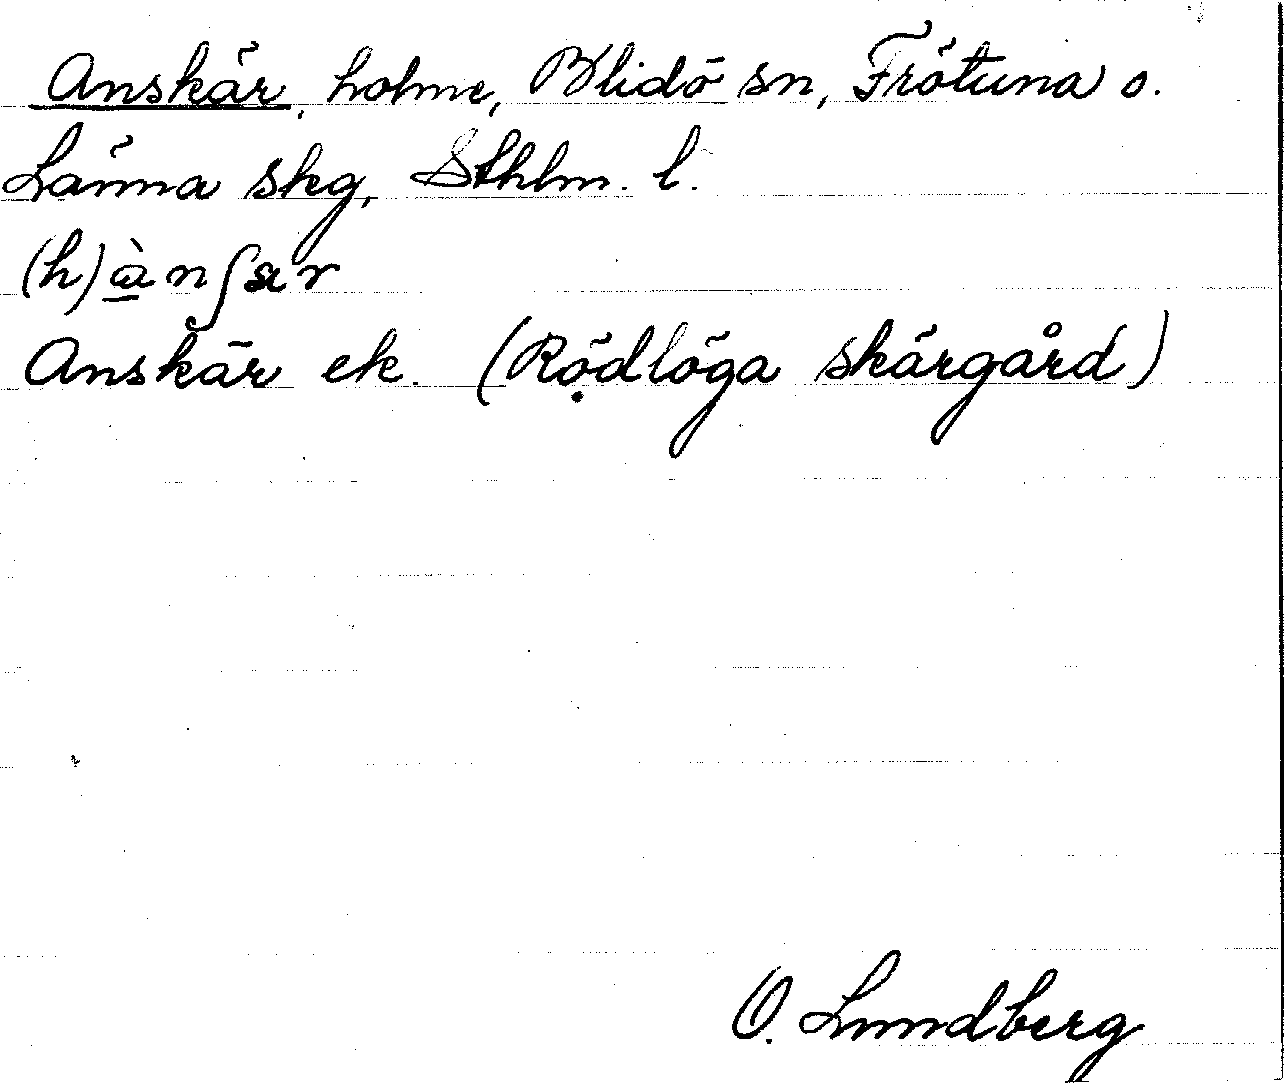 Anskär, holme, Blidö sn, Frötuna o.
Länna skg, Sthlm. l.
(h)à̱nʃær
Anskär ek. (Rödlöga skärgård)
O. Lundberg